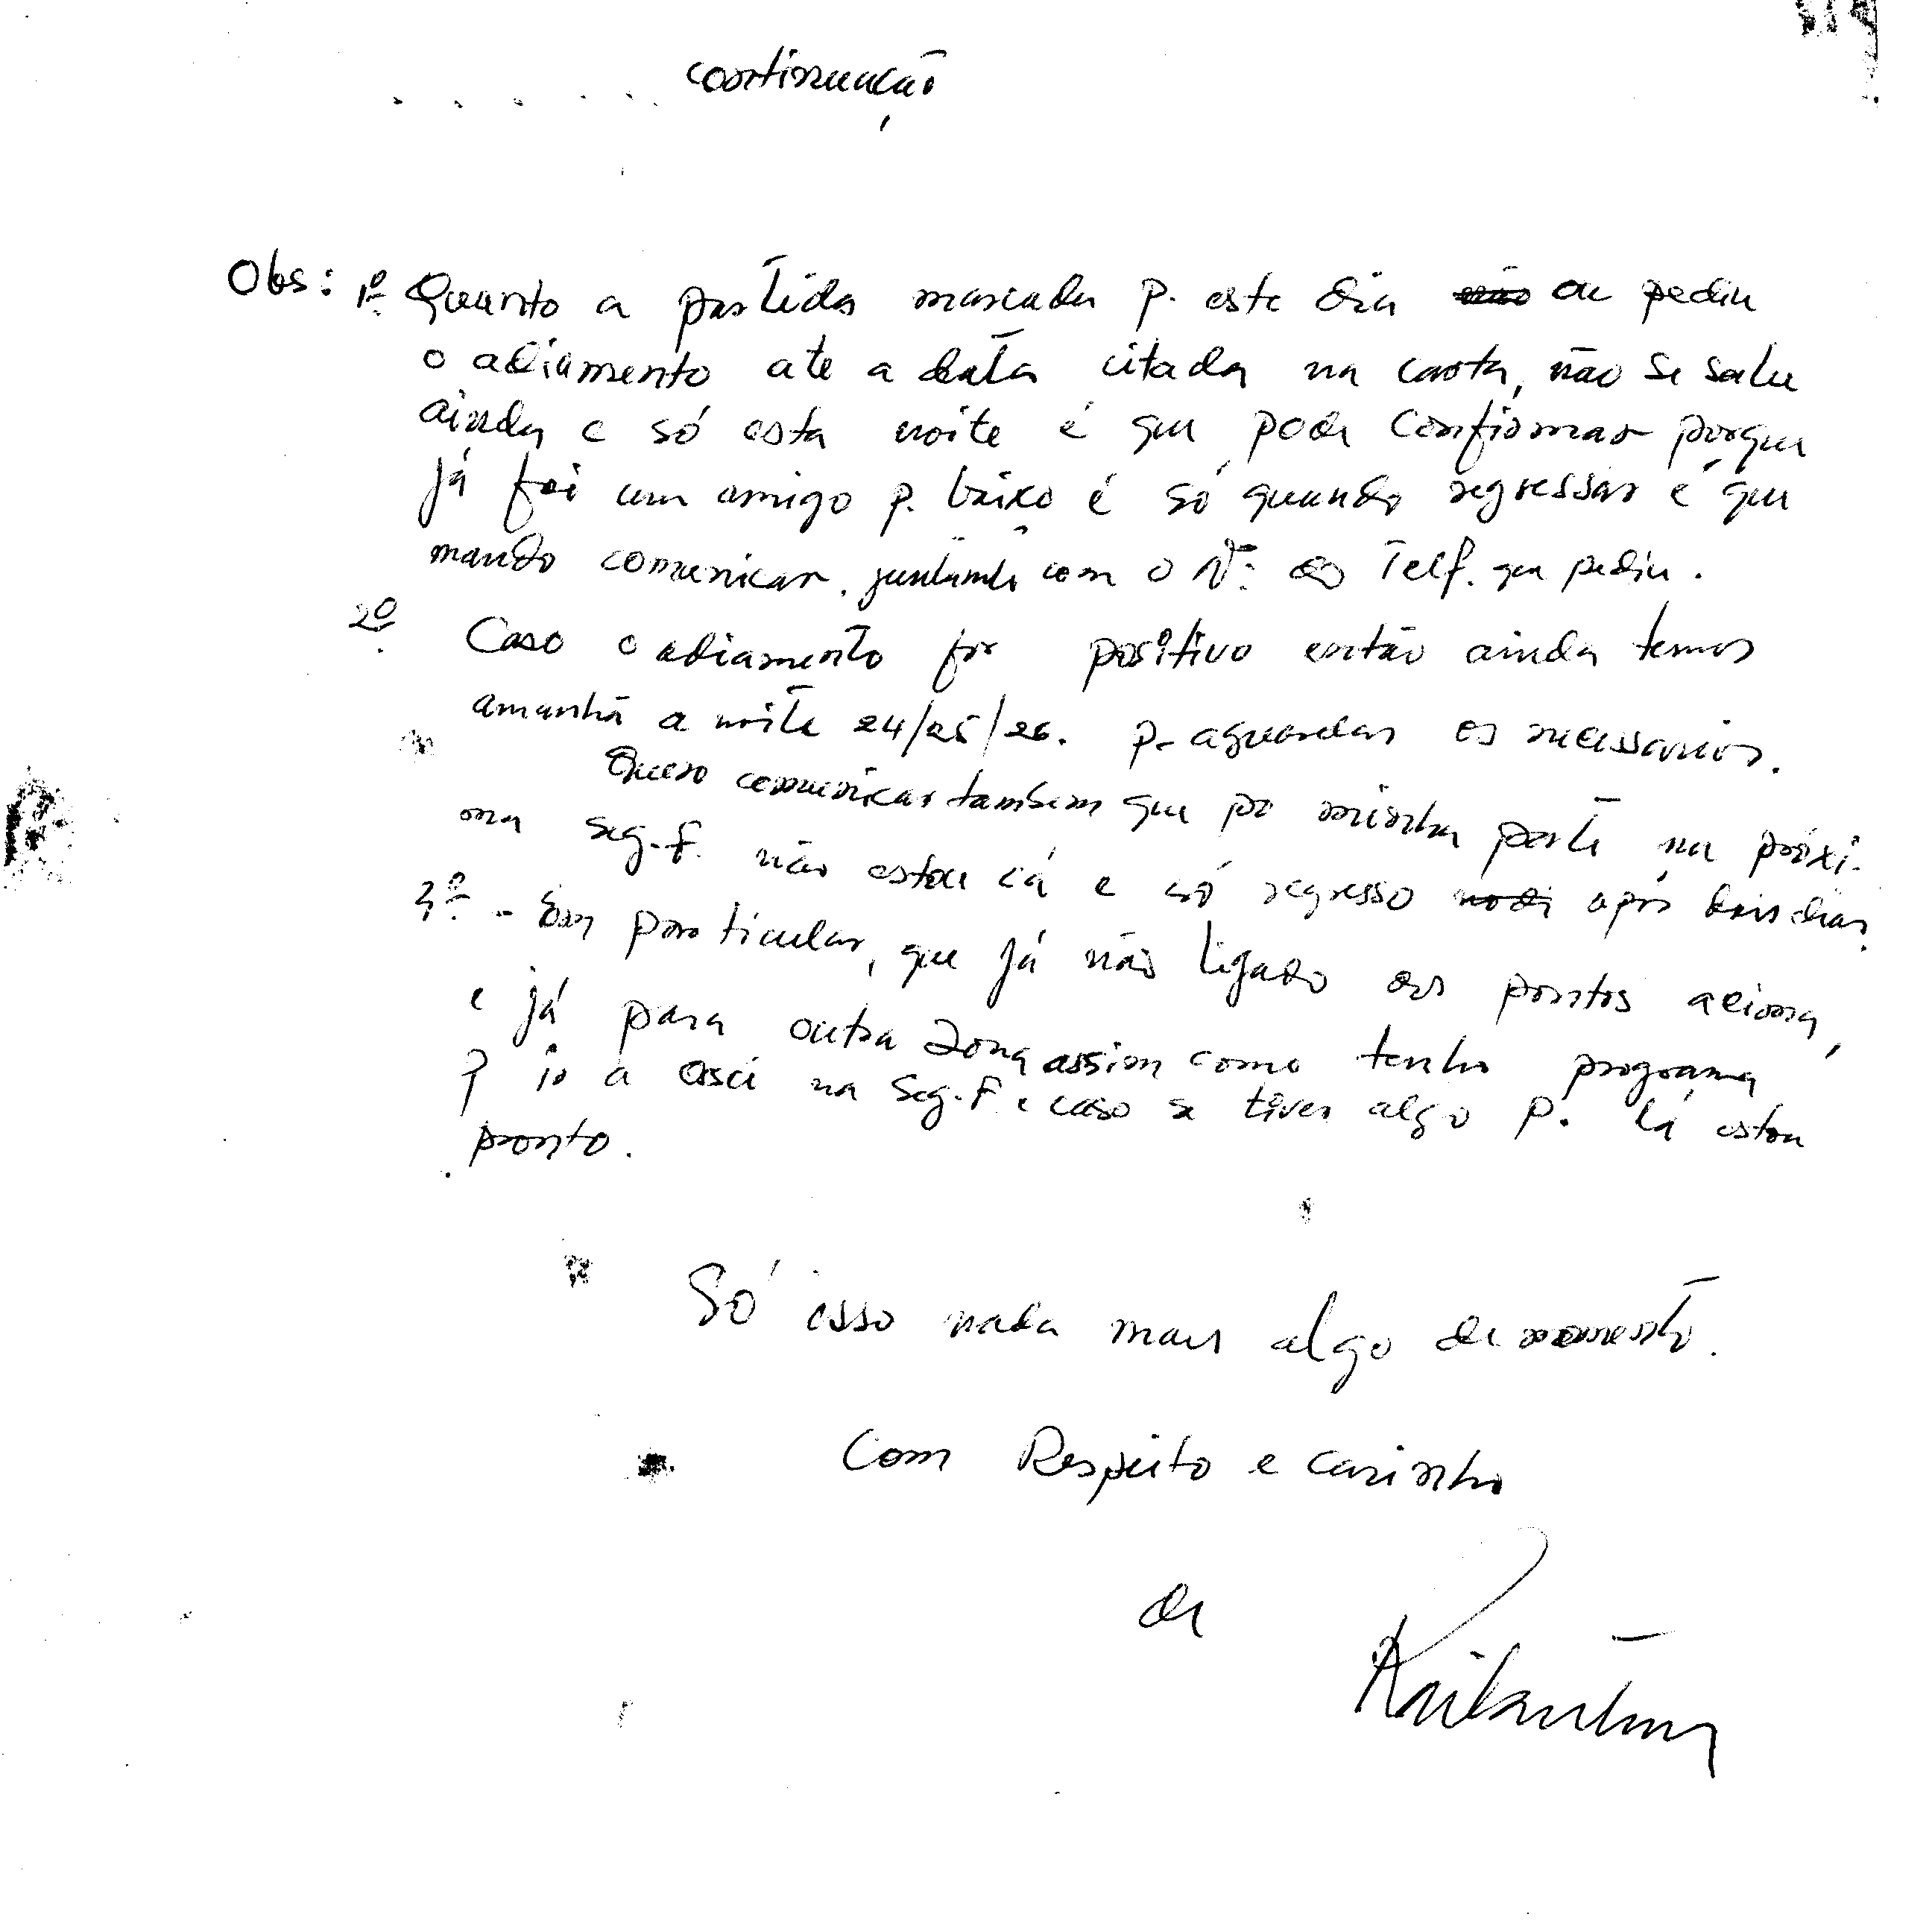 . . . . . . continuação
Obs: 1º Quanto a partida marcada p. este dia ~~não~~ ou pediu
o adiamento ate a data citada na carta, não se sabe
ainda e só esta noite é que pode confirmar porque
já foi um amigo p. baixo é só quando regressar é que
mando comunicar. juntamte com o Nº do Telf. que pediu.
2º Caso o adiamento for positivo então ainda temos
amanhã a noite 24/25/26. p. aguardar os necessarios.
Quero comunicar tambem que por minha parte na próxi-
ma seg.f. não estou cá e só regresso após dois dias.
3º - Em particular, que já não ligado aos pontos acima,
e já para outra zona assim como tenho programa
p ir a na Seg.F. e caso se tiver algo p. lá estou
pronto.
Só isso nada mais algo de momento.
Com Respeito e carinho
de